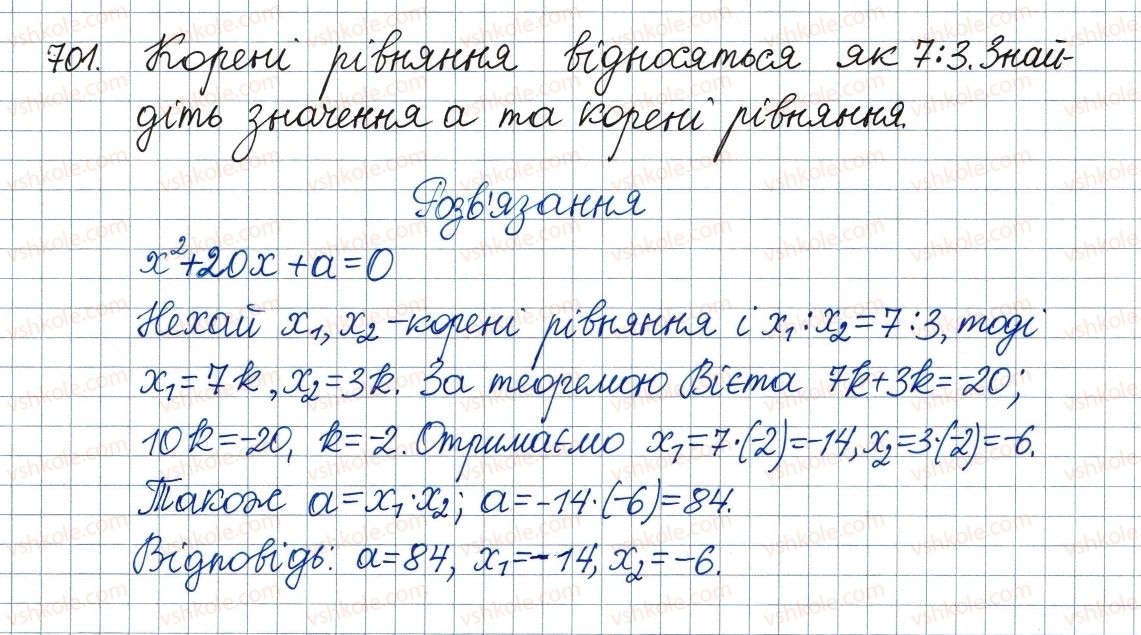 701. Корені рівняння відносяться як 7:3. Знай-
діть значення a та корені рівняння.
Розв'язання
x²+20x+a=0
Нехай x₁, x₂ - корені рівняння і x₁:x₂=7:3, тоді
x₁=7k, x₂=3k. За теоремою Вієта 7k+3k=-20;
10k=-20, k=-2. Отримаємо x₁=7·(-2)=-14, x₂=3·(-2)=-6.
Також a=x₁·x₂; a=-14·(-6)=84.
Відповідь: a=84, x₁=-14, x₂=-6.